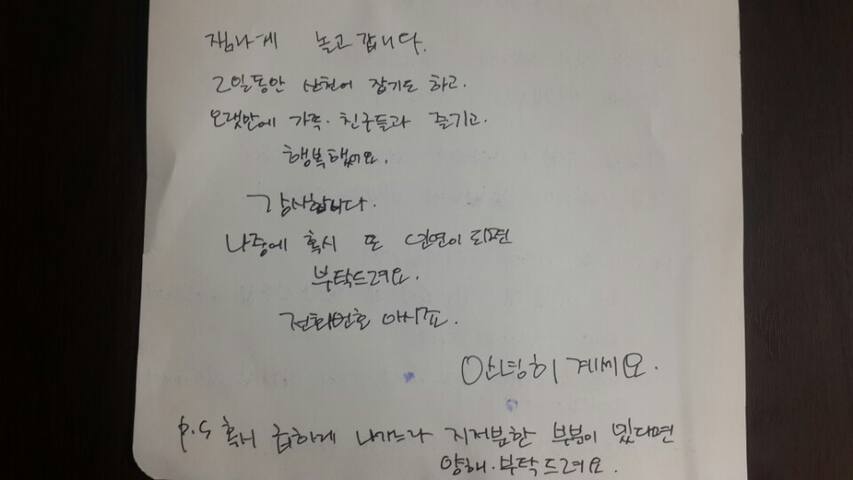 잼나게 놀고 갑니다.
2일동안 산천어 잡기도 하고.
오랫만에 가족·친구들과 즐기고.
행복했어요.
감사합니다.
나중에 혹시 또 인연이 되면
부탁드려요.
전화번호 아시죠.
안녕히 계세요.
P.S 혹시 급하게 나가느라 지저분한 부분이 있다면
양해·부탁드려요.